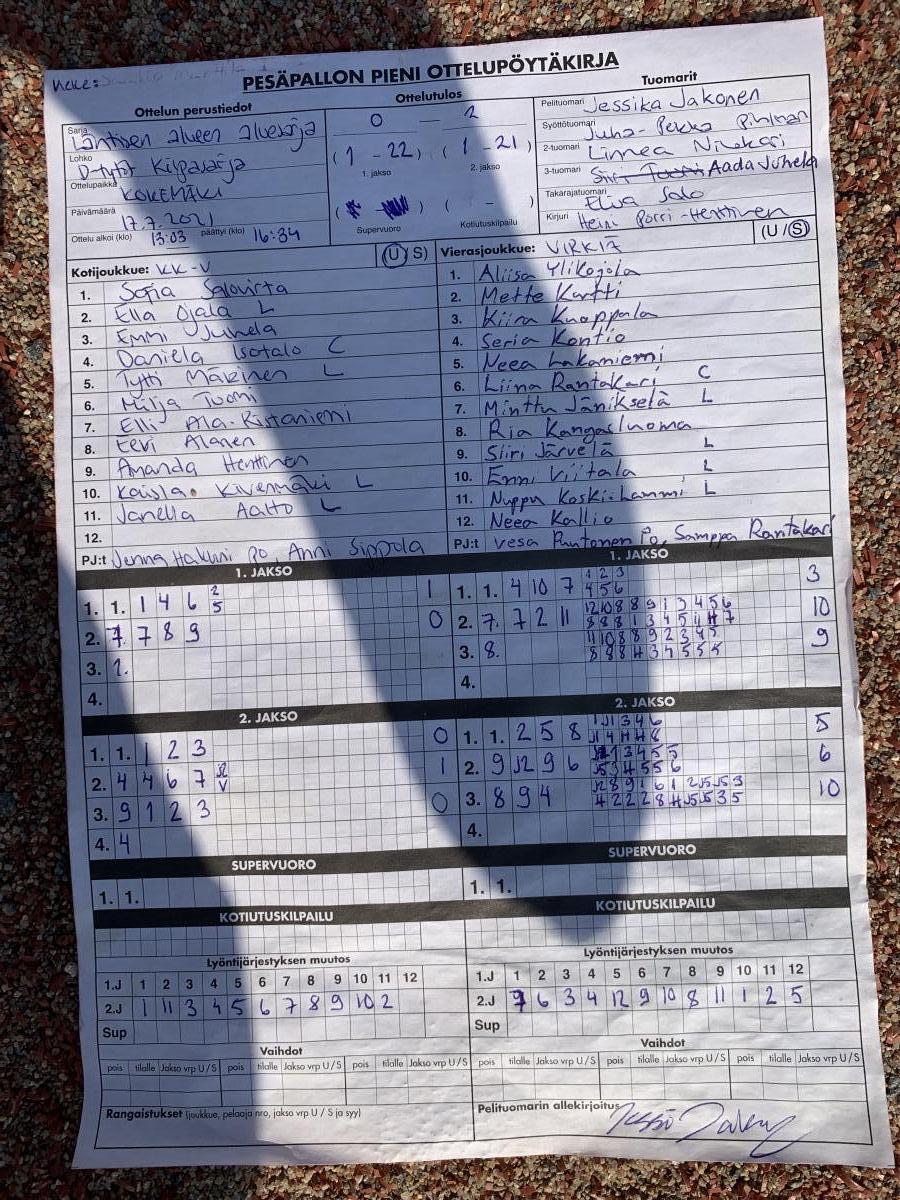 PESÄPALLON PIENI OTTELUPÖYTÄKIRJA
Ottelun perustiedot
Ottelutulos
Tuomarit
Sarja Läntisen alueen aluesarja
Lohko D-tytöt Kilpasarja
Ottelupaikka KOKEMÄKI
Päivämäärä 17.7.2021
Ottelu alkoi (klo) 13:03 päättyi (klo) 16:34
0 – 2
(1 - 22) (1 - 21)
1. jakso 2. jakso
( ) ( - )
Supervuoro Kotiutuskilpailu
Pelituomari Jessika Jakonen
Syöttötuomari Juha-Pekka Pihlman
2-tuomari Linnea Niukkari
3-tuomari Aada Juhela
Takarajatuomari Elisa Salo
Kirjuri Heini Porri-Henttinen
Kotijoukkue: KK-V (U/S)
1. Sofia Salovirta
2. Ella Ojala L
3. Emmi Juhela
4. Daniela Isotalo C
5. Tytti Mäkinen L
6. Milja Tuomi
7. Elli Ala-Kiistaniemi
8. Eevi Alanen
9. Amanda Henttinen
10. Kaisla Kivenmäki L
11. Janella Aalto L
12.
PJ:t Jenna Hakuni PO, Anni Sippola
Vierasjoukkue: VIRKIÄ (U/S)
1. Aliisa Ylikojola
2. Mette Kartti
3. Kiira Knuppala
4. Seria Kontio
5. Neea Lakaniemi
6. Liina Rantakari C
7. Minttu Jänikselä L
8. Ria Kangasluoma
9. Siiri Järvelä L
10. Enni Viitala L
11. Nuppu Koski-Lammi L
12. Neea Kallio
PJ:t Vesa Puntonen PO, Samppa Rantakari
1. JAKSO
1. 1. 1 4 6 2 5 1
2. 7. 7 8 9 0
3. 1.
4.
1. JAKSO
1. 1. 4 10 7 1 2 3 4 5 6 3
2. 7. 7 2 11 10
3. 8. 9
4.
2. JAKSO
1. 1. 1 2 3 0
2. 4 4 6 7 1
3. 9 1 2 3 0
4. 4
2. JAKSO
1. 1. 2 5 8 5
2. 9 12 9 6 6
3. 8 9 4 10
4.
SUPERVUORO
1. 1.
SUPERVUORO
1. 1.
KOTIUTUSKILPAILU
KOTIUTUSKILPAILU
Lyöntijärjestyksen muutos
1.J 1 2 3 4 5 6 7 8 9 10 11 12
2.J 1 11 3 4 5 6 7 8 9 10 2
Sup
Lyöntijärjestyksen muutos
1.J 1 2 3 4 5 6 7 8 9 10 11 12
2.J 7 6 3 4 12 9 10 8 11 1 2 5
Sup
Vaihdot
pois tilalle Jakso vrp U/S pois tilalle Jakso vrp U/S pois tilalle Jakso vrp U/S
Vaihdot
pois tilalle Jakso vrp U/S pois tilalle Jakso vrp U/S pois tilalle Jakso vrp U/S
Rangaistukset (joukkue, pelaaja nro, jakso vrp U / S ja syy)
Pelituomarin allekirjoitus